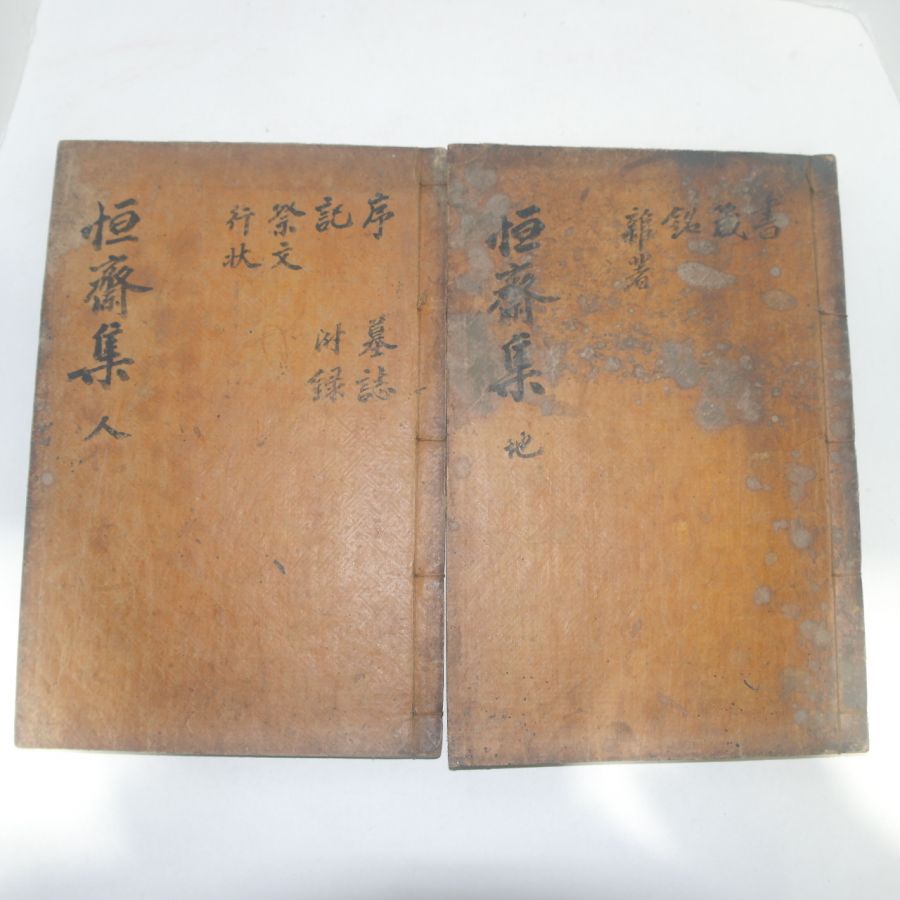 恒齋集 人
序 墓誌
記 附錄
祭文
行狀
恒齋集 地
書
箴
銘
雜著